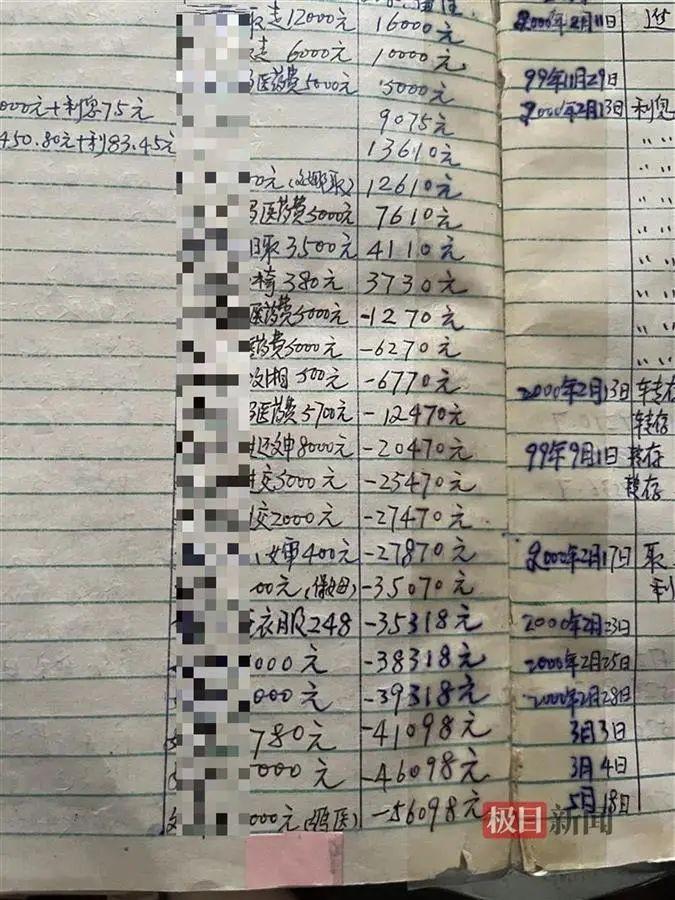 取走12000元 16000元 2000年2月11日
取走 6000元 10000元
医药费5000元 5000元 99年11月29日
000元+利息75元 9075元 2000年2月13日 利息
450.80元+利83.45元 13610元 〃 〃
00元 12610元 〃 〃
医药费5000元 7610元 〃 〃
取3500元 4110元 〃 〃
椅380元 3730元 〃 〃
医药费5000元 -1270元 〃 〃
医药费5000元 -6270元 〃 〃
500元 -6770元 2000年2月13日 转存
医药费5700元 -12470元 转存
8000元 -20470元 99年9月1日 转存
交5000元 -25470元 转存
交2000元 -27470元
400元 -27870元 2000年2月17日 取
00元(保姆) -35070元 利
衣服248 -35318元 2000年2月23日
000元 -38318元 2000年2月25日
000元 -39318元 2000年2月28日
780元 -41098元 3月3日
000元 -46098元 3月4日
000元 -56098元 5月18日
极目新闻